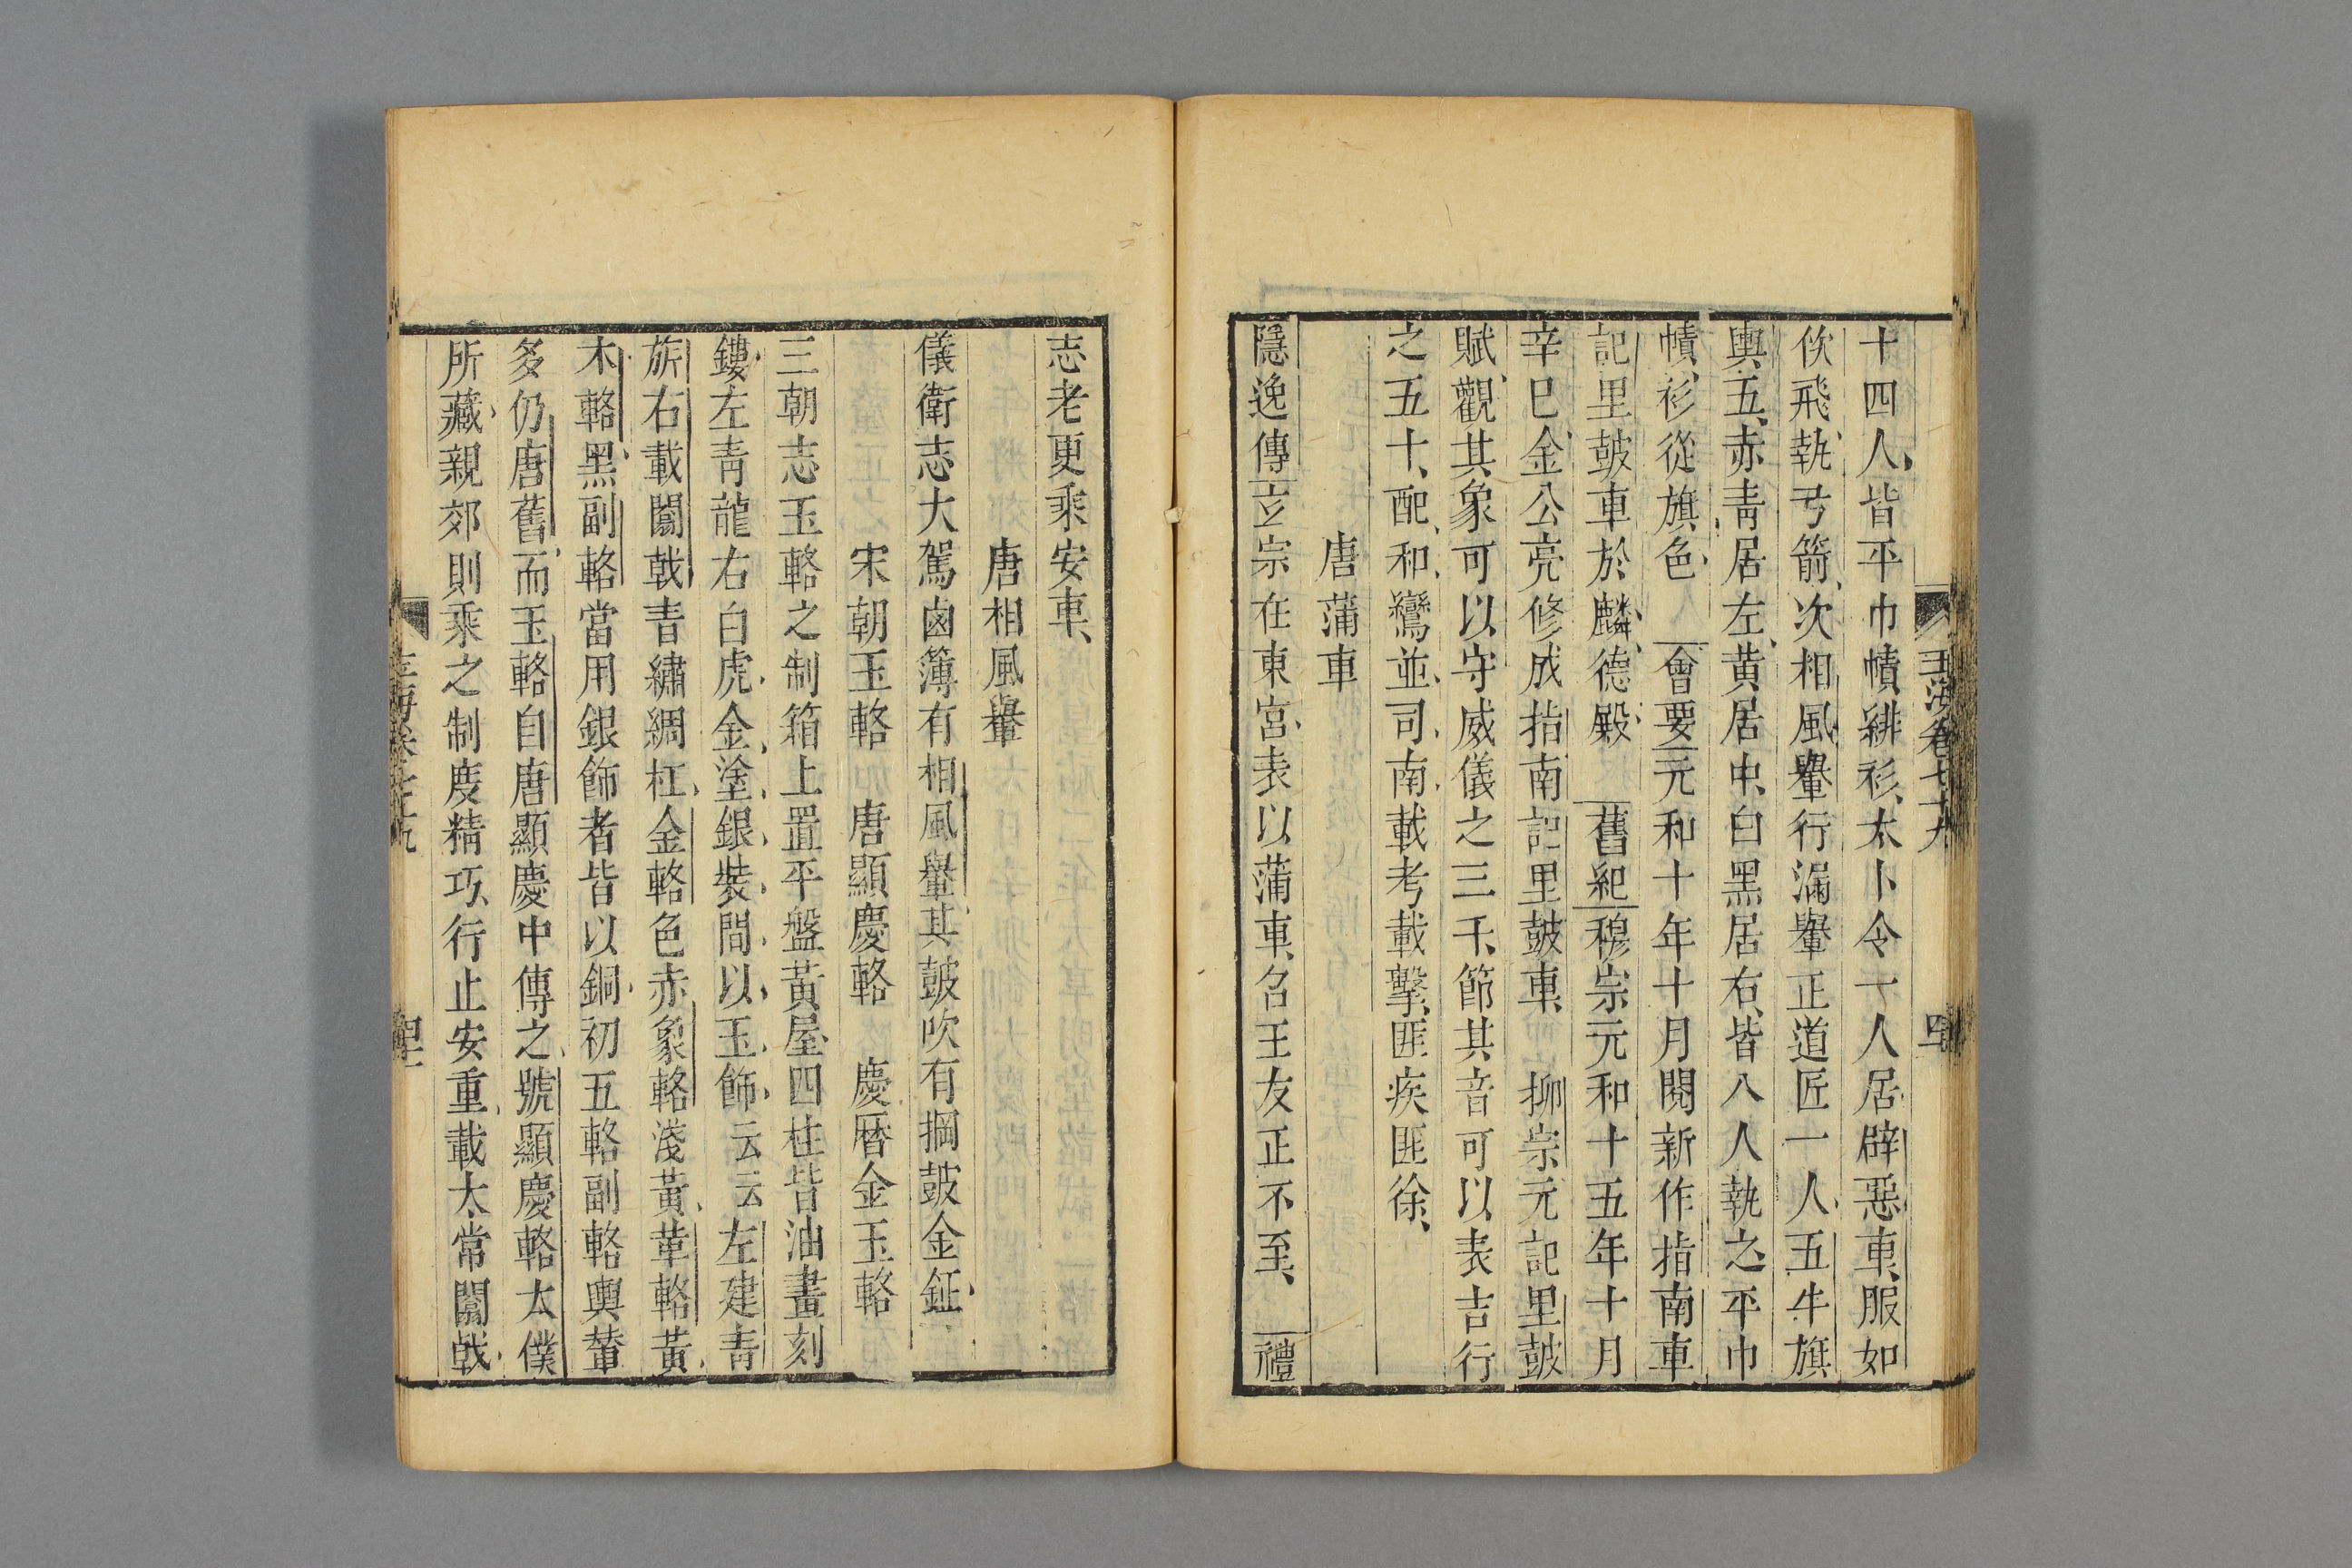 玉海卷七十九
十四人皆平巾幘緋衫太卜令一人居辟惡車服如
佽飛執弓箭次相風轝行漏轝正道匠一人五牛旗
輿五赤青居左黄居中白黑居右皆八人執之平巾
幘衫從旗色 會要元和十年十月閱新作指南車
記里皷車於麟德殿 舊紀穆宗元和十五年十月
辛巳金公亮修成指南記里皷車 柳宗元記里皷
賦觀其象可以守威儀之三千節其音可以表吉行
之五十配和鸞並司南載考載擊匪疾匪徐
唐蒲車
隱逸傳玄宗在東宫表以蒲車召王友正不至 禮
志老更乘安車
唐相風轝
儀衛志大駕鹵簿有相風轝其皷吹有掆皷金鉦
宋朝玉輅 唐顯慶輅 慶曆金玉輅
三朝志玉輅之制箱上置平盤黃屋四柱皆油畫刻
鏤左青龍右白虎金塗銀裝間以玉飾云云左建青
旂右載闟戟青繡綢杠金輅色赤象輅淺黃革輅黃
木輅黑副輅當用銀飾者皆以銅初五輅副輅輿輦
多仍唐舊而玉輅自唐顯慶中傳之號顯慶輅太僕
所藏親郊則乘之制度精巧行止安重載太常闟戟